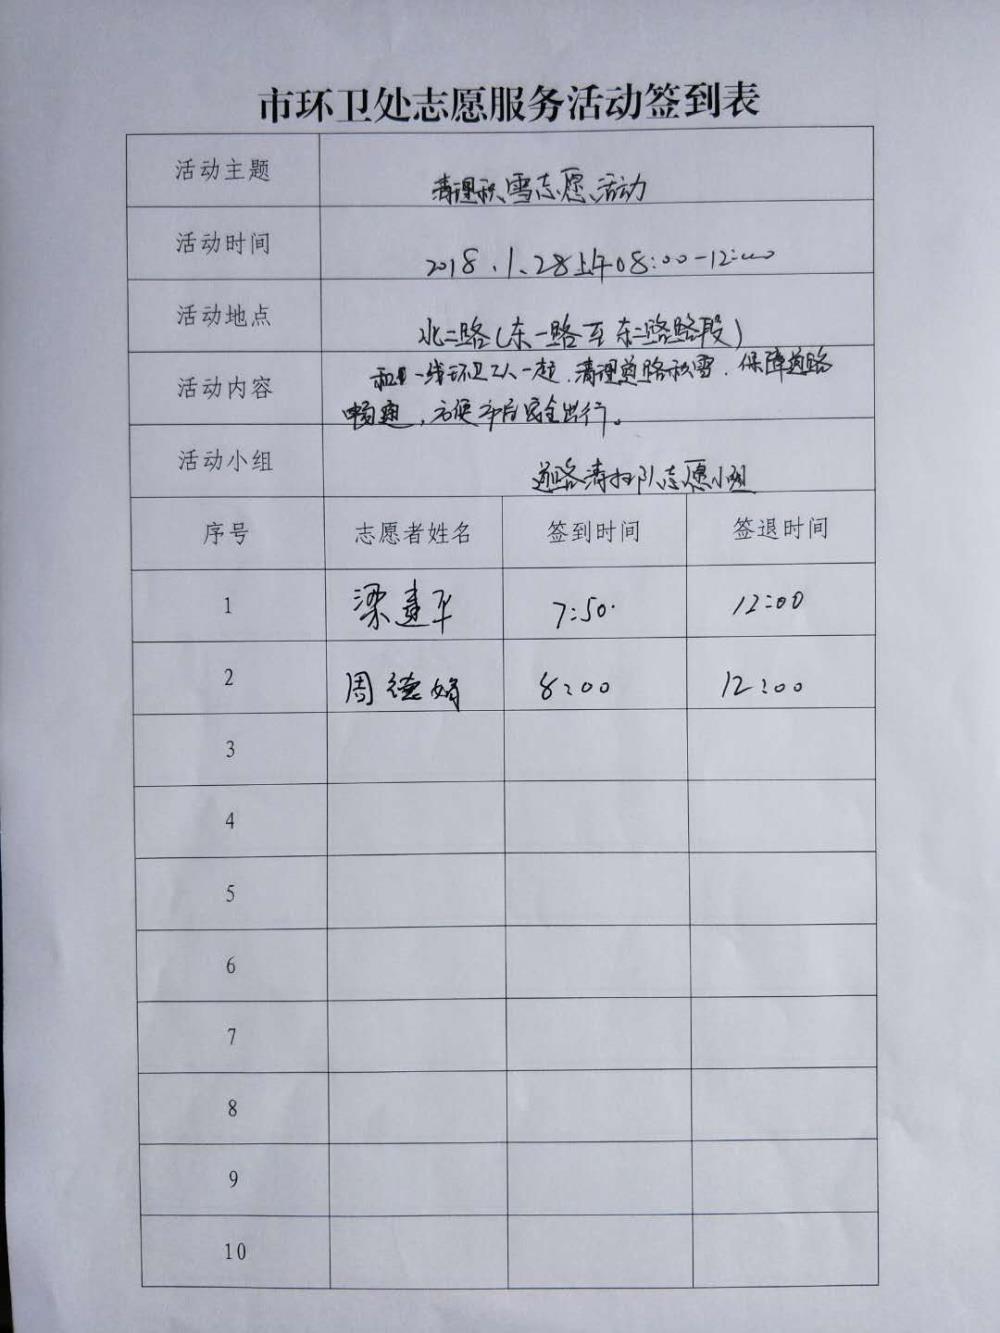 市环卫处志愿服务活动签到表
活动主题 清理积雪志愿活动
活动时间 2018.1.28上午08:00-12:00
活动地点 北二路(东一路至东二路路段)
活动内容 和一线环卫工人一起,清理道路积雪,保障道路
畅通,方便市民安全出行。
活动小组 道路清扫队志愿小组
序号 志愿者姓名 签到时间 签退时间
1 梁建平 7:50 12:00
2 周德娟 8:00 12:00
3
4
5
6
7
8
9
10